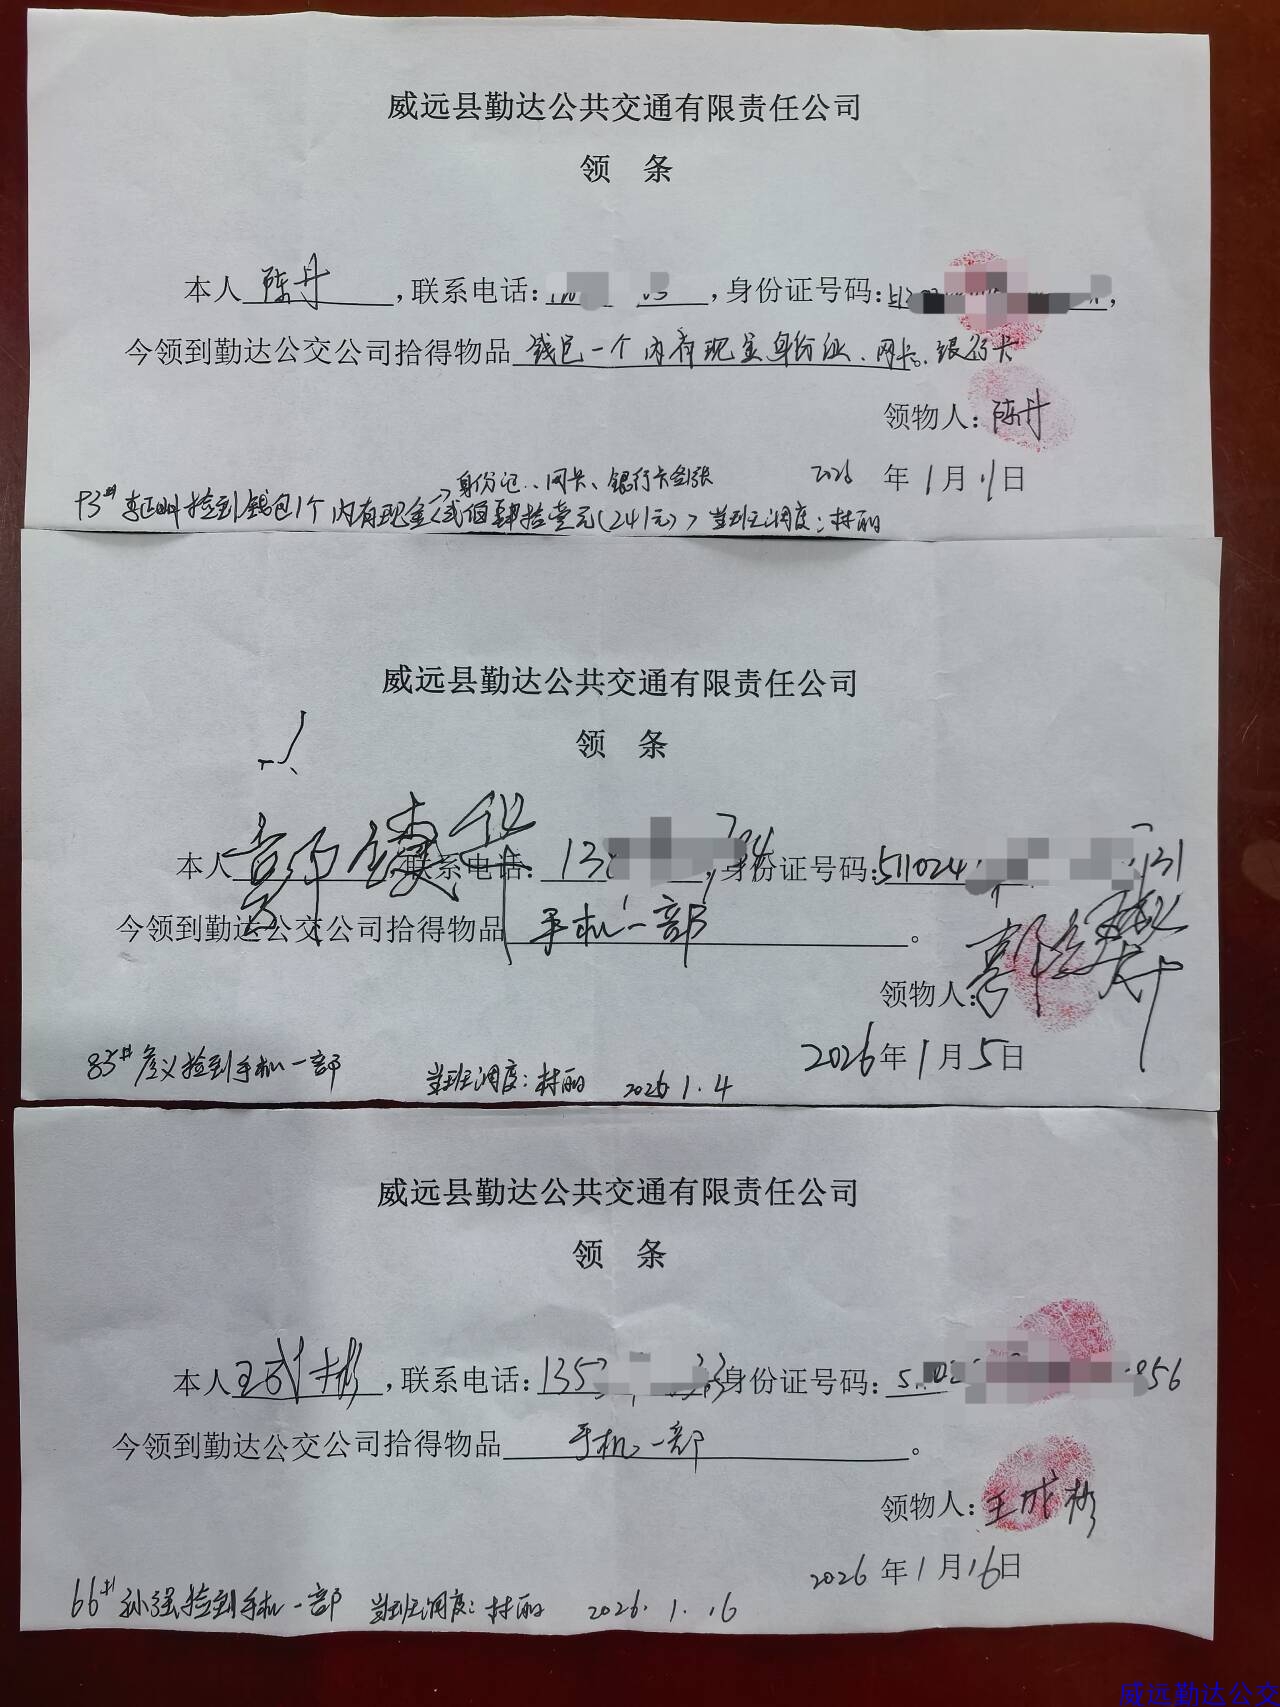 威远县勤达公共交通有限责任公司
领 条
本人 陈丹 ,联系电话: ,身份证号码: ,
今领到勤达公交公司拾得物品 钱包一个 内有现金身份证、网卡、银行卡
领物人: 陈丹
2026 年 1 月 11 日
身份证、网卡、银行卡各1张
93# 捡到钱包1个 内有现金贰佰肆拾壹元(241元) 当班调度: 林丽
威远县勤达公共交通有限责任公司
领 条
本人 郭镇华 联系电话: 13 ,身份证号码: 511024 131
今领到勤达公交公司拾得物品 手机一部 。
领物人: 郭镇华
2026 年 1 月 5 日
85# 捡到手机一部 当班调度: 林丽 2026.1.4
威远县勤达公共交通有限责任公司
领 条
本人 王成彬 ,联系电话: 135 33 身份证号码: 5 056
今领到勤达公交公司拾得物品 手机一部 。
领物人: 王成彬
2026 年 1 月 16 日
66# 孙强捡到手机一部 当班调度: 林丽 2026.1.16
威远勤达公交